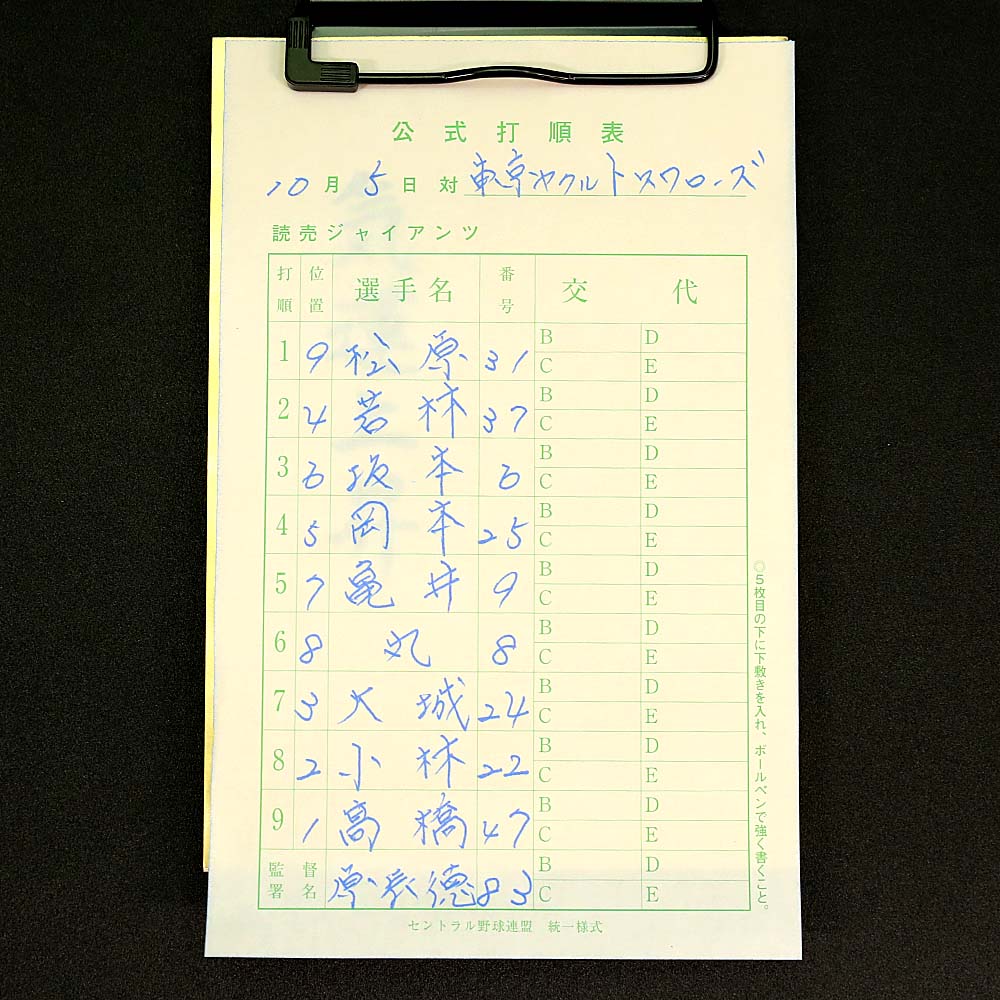 公式打順表
10月5日対東京ヤクルトスワローズ
読売ジャイアンツ
打順 位置 選手名 番号 交代
1 9 松原 31 B D
C E
2 4 若林 37 B D
C E
3 6 坂本 6 B D
C E
4 5 岡本 25 B D
C E
5 7 亀井 9 B D
C E
6 8 丸 8 B D
C E
7 3 大城 24 B D
C E
8 2 小林 22 B D
C E
9 1 高橋 47 B D
C E
監督署名 原辰徳 83 B D
C E
◎5枚目の下に下敷きを入れ、ボールペンで強く書くこと。
セントラル野球連盟 統一様式